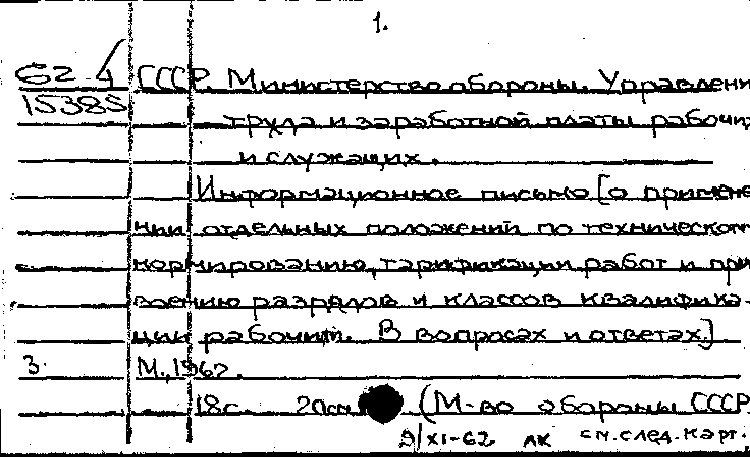 1.
62-4 СССР. Министерство обороны. Управлени
15385 труда и заработной платы рабочи
и служащих.
Информационное письмо [о примене
нии отдельных положений по техническом
нормированию, тарификации работ и при
воению разрядов и классов квалифика-
ции рабочим. В вопросах и ответах.]
3. М., 1962.
18с. 20см (М-во обороны СССР
9/XI-62 АК см.след.карт.